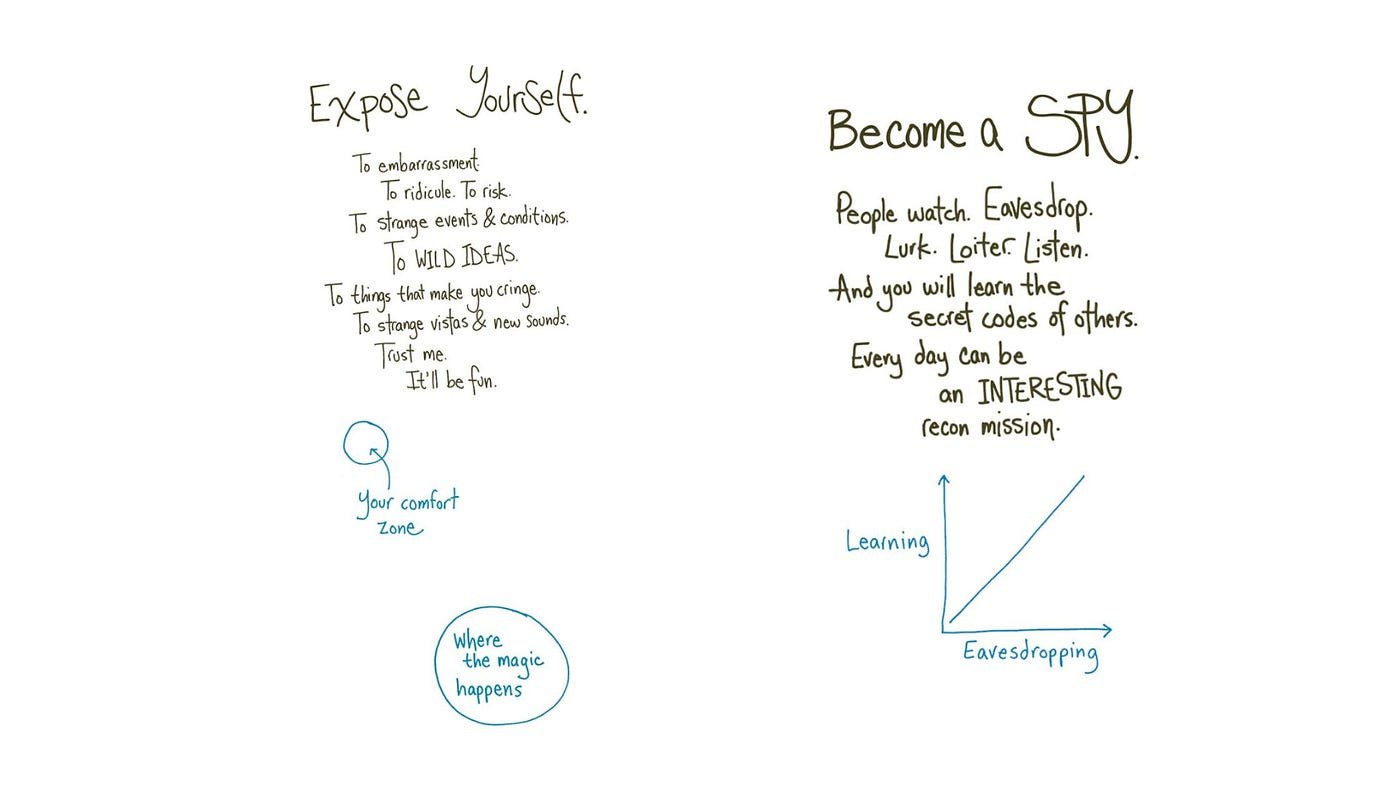 Expose Yourself.
To embarrassment.
To ridicule. To risk.
To strange events & conditions.
To WILD IDEAS.
To things that make you cringe.
To strange vistas & new sounds.
Trust me.
It'll be fun.
Your comfort
zone
Where
the magic
happens
Become a SPY.
People watch. Eavesdrop.
Lurk. Loiter. Listen.
And you will learn the
secret codes of others.
Every day can be
an INTERESTING
recon mission.
Learning
Eavesdropping